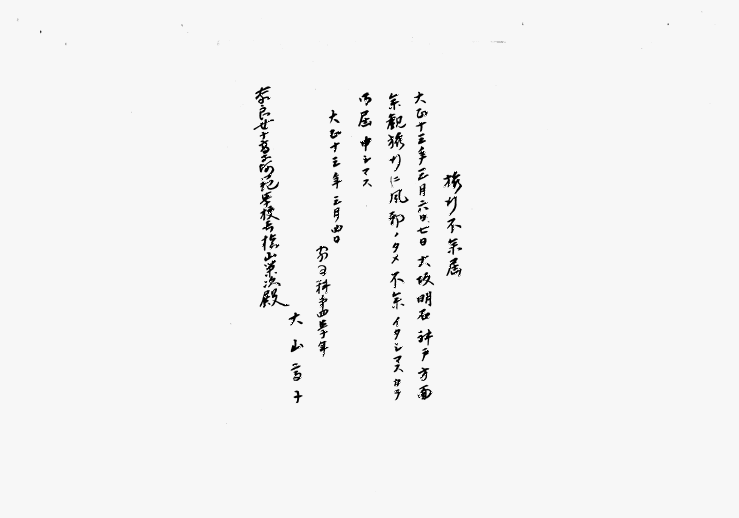 旅行不参届
大正十三年三月六日、七日大坂明石神戸方面
参観旅行に風邪ノタメ不参イタシマスカラ
御届申シマス
大正十三年三月四日
家事科第四学年
大山
子
奈良女子高等師範学校長槇山栄次殿